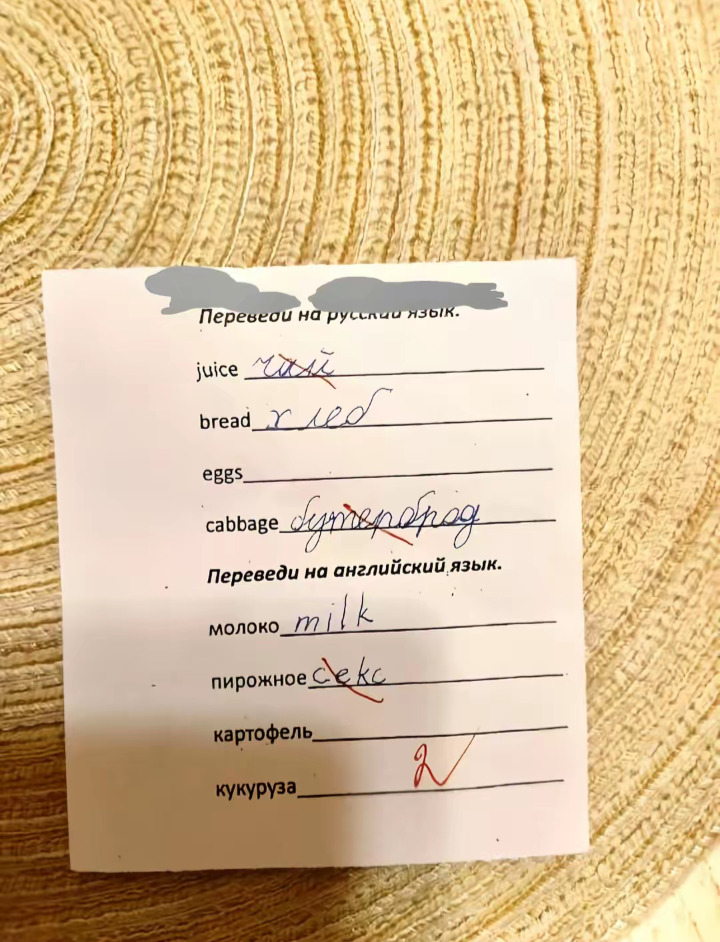 Переведи на русский язык.
juice чай
bread хлеб
eggs
cabbage бутерброд
Переведи на английский язык.
молоко milk
пирожное секс
картофель
кукуруза
2